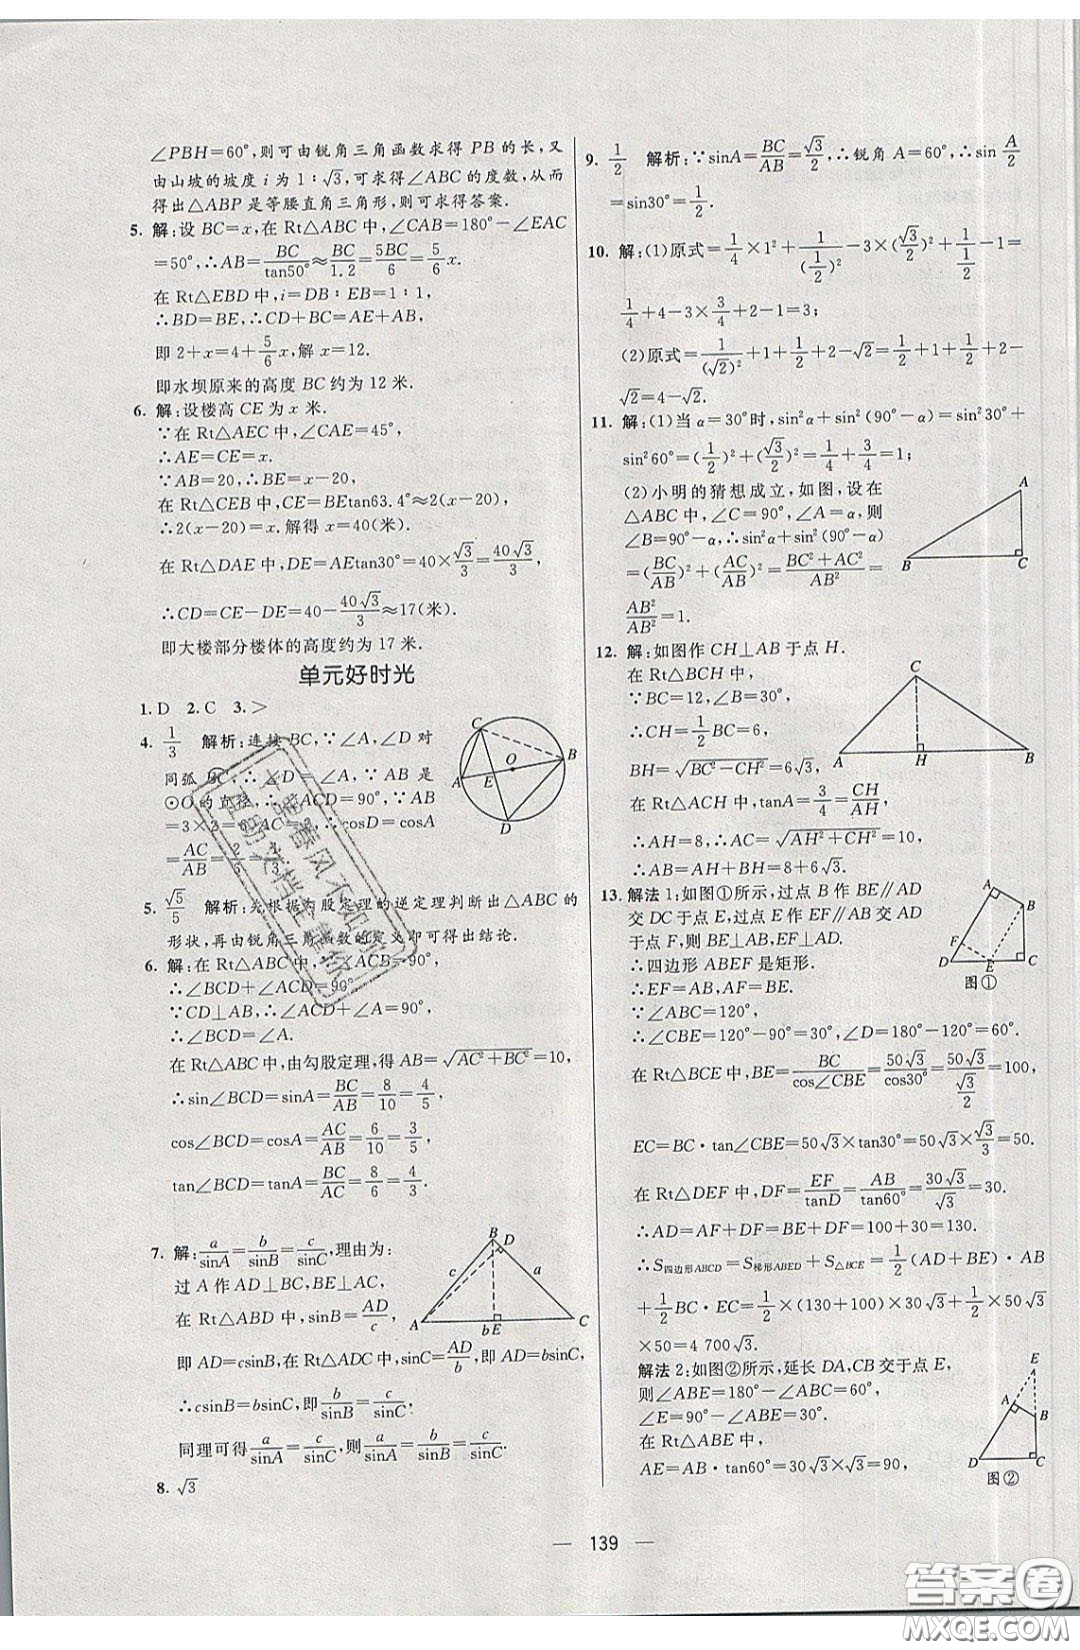 ∠PBH=60°,则可由锐角三角函数求得 PB 的长,又
由山坡的坡度 i 为 1∶√3,可求得∠ABC 的度数,从而
得出△ABP 是等腰直角三角形,则可求得答案.
5. 解:设 BC=x,在 Rt△ABC 中,∠CAB=180°-∠EAC
=50°,∴AB=BC/tan50°≈BC/1.2=5BC/6=5/6 x.
在 Rt△EBD 中,i=DB∶EB=1∶1,
∴BD=BE,∴CD+BC=AE+AB,
即 2+x=4+5/6 x,解 x=12.
即水坝原来的高度 BC 约为 12 米.
6. 解:设楼高 CE 为 x 米.
∵在 Rt△AEC 中,∠CAE=45°,
∴AE=CE=x.
∵AB=20,∴BE=x-20,
在 Rt△CEB 中,CE=BEtan63.4°≈2(x-20),
∴2(x-20)=x.解得 x=40(米).
在 Rt△DAE 中,DE=AEtan30°=40×√3/3=40√3/3,
∴CD=CE-DE=40-40√3/3≈17(米).
即大楼部分楼体的高度约为 17 米.
单元好时光
1. D 2. C 3. >
4. 1/3 解析:连接 BC,∵∠A,∠D 对
同弧 BC,∴∠D=∠A,∵AB 是
⊙O 的直径,∴∠ACD=90°,∵AB
=3×3=6,AC=2,∴cosD=cosA
=AC/AB=2/6=1/3.
C
A E O B
D
5. √5/5 解析:先根据勾股定理的逆定理判断出△ABC 的
形状,再由锐角三角函数的定义即可得出结论.
6. 解:在 Rt△ABC 中,∵∠ACB=90°,
∴∠BCD+∠ACD=90°,
∵CD⊥AB,∴∠ACD+∠A=90°,
∴∠BCD=∠A.
在 Rt△ABC 中,由勾股定理,得 AB=√(AC²+BC²)=10,
∴sin∠BCD=sinA=BC/AB=8/10=4/5,
cos∠BCD=cosA=AC/AB=6/10=3/5,
tan∠BCD=tanA=BC/AC=8/6=4/3.
7. 解:a/sinA=b/sinB=c/sinC,理由为:
过 A 作 AD⊥BC,BE⊥AC,
在 Rt△ABD 中,sinB=AD/c,
B D
c a
A b E C
即 AD=csinB,在 Rt△ADC 中,sinC=AD/b,即 AD=bsinC,
∴csinB=bsinC,即 b/sinB=c/sinC,
同理可得 a/sinA=c/sinC,则 a/sinA=b/sinB=c/sinC.
8. √3
9. 1/2 解析:∵sinA=BC/AB=√3/2,∴锐角 A=60°,∴sin A/2
=sin30°=1/2.
10. 解:(1)原式=1/4×1²+1/(1/2)²-3×(√3/2)²+(1/2)/(1/2)-1=
1/4+4-3×3/4+1-1=3;
(2)原式=1/(√2)²+1+1/2+2-√2=1/2+1+1/2+2-
√2=4-√2.
11. 解:(1)当 α=30°时,sin²α+sin²(90°-α)=sin²30°+
sin²60°=(1/2)²+(√3/2)²=1/4+3/4=1;
(2)小明的猜想成立,如图,设在
△ABC 中,∠C=90°,∠A=α,则
∠B=90°-α,∴sin²α+sin²(90°-α)
=(BC/AB)²+(AC/AB)²=(BC²+AC²)/AB²=
AB²/AB²=1.
A
B C
12. 解:如图作 CH⊥AB 于点 H.
在 Rt△BCH 中,
∵BC=12,∠B=30°,
∴CH=1/2 BC=6,
BH=√(BC²-CH²)=6√3,
在 Rt△ACH 中,tanA=3/4=CH/AH,
∴AH=8,∴AC=√(AH²+CH²)=10,
∴AB=AH+BH=8+6√3.
C
A H B
13. 解法 1:如图①所示,过点 B 作 BE∥AD
交 DC 于点 E,过点 E 作 EF∥AB 交 AD
于点 F,则 BE⊥AB,EF⊥AD.
∴四边形 ABEF 是矩形.
∴EF=AB,AF=BE.
∵∠ABC=120°,
∴∠CBE=120°-90°=30°,∠D=180°-120°=60°.
A
B
F
D E C
图①
在 Rt△BCE 中,BE=BC/cos∠CBE=50√3/cos30°=50√3/(√3/2)=100,
EC=BC·tan∠CBE=50√3×tan30°=50√3×√3/3=50.
在 Rt△DEF 中,DF=EF/tanD=AB/tan60°=30√3/√3=30.
∴AD=AF+DF=BE+DF=100+30=130.
∴S四边形ABCD=S梯形ABED+S△BCE=1/2(AD+BE)·EF
+1/2 BC·EC=1/2×(130+100)×30√3+1/2×50√3
×50=4 700√3.
解法 2:如图②所示,延长 DA,CB 交于点 E,
则∠ABE=180°-∠ABC=60°,
∠E=90°-∠ABE=30°.
在 Rt△ABE 中,
AE=AB·tan60°=30√3×√3=90,
E
A
B
D C
图②
— 139 —
答案圈
MXQE.COM